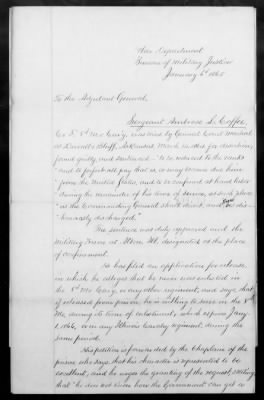 War Department
Bureau of Military Justice
January 6th 1865
To the Adjutant General,
Sergeant Ambrose L. Coffee
Co. 8th Mo Cav'y, was tried by General Court Martial
at Duvall's Bluff, Arkansas, March 1864 for desertion,
found guilty, and sentenced "to be reduced to the ranks
and to forfeit all pay that is, or may become due him
from the United States, and to be confined at hard labor
during the remainder of his term of service, at such place
as the Commanding General shall direct, and then be dis-
honorably discharged."
The sentence was duly approved and the
Military Prison at Alton, Ill. designated as the place
of confinement.
He has filed an application for release,
in which he alleges that he never was enlisted in
the 8th Mo Cav'y, or any other regiment, and says that
if released from prison, he is willing to serve in the 8th
Mo, during its time of enlistment, which expires Jany
1, 1866, or in any Illinois Cavalry regiment, during the
same period.
His petition is forwarded by the Chaplain of the
prison who says that his character is represented to be
excellent, and he urges the granting of the request, stating
that "he does not know how the Government can get a